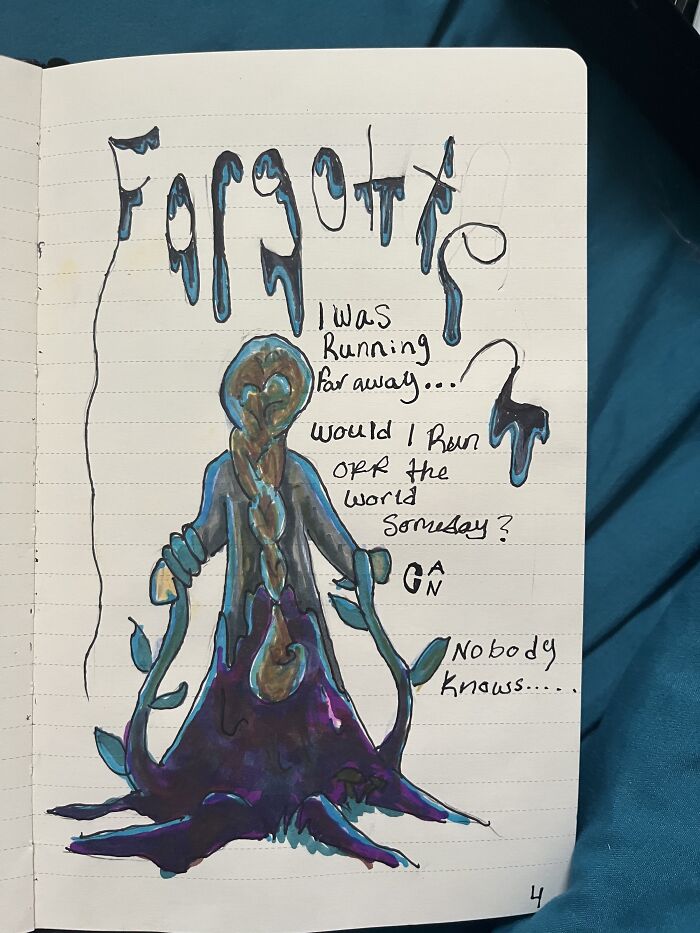 Forgotten
I Was
Running
Far away...
Would I Run
OFF the
World
Someday?
CAN
Nobody
Knows.....
4